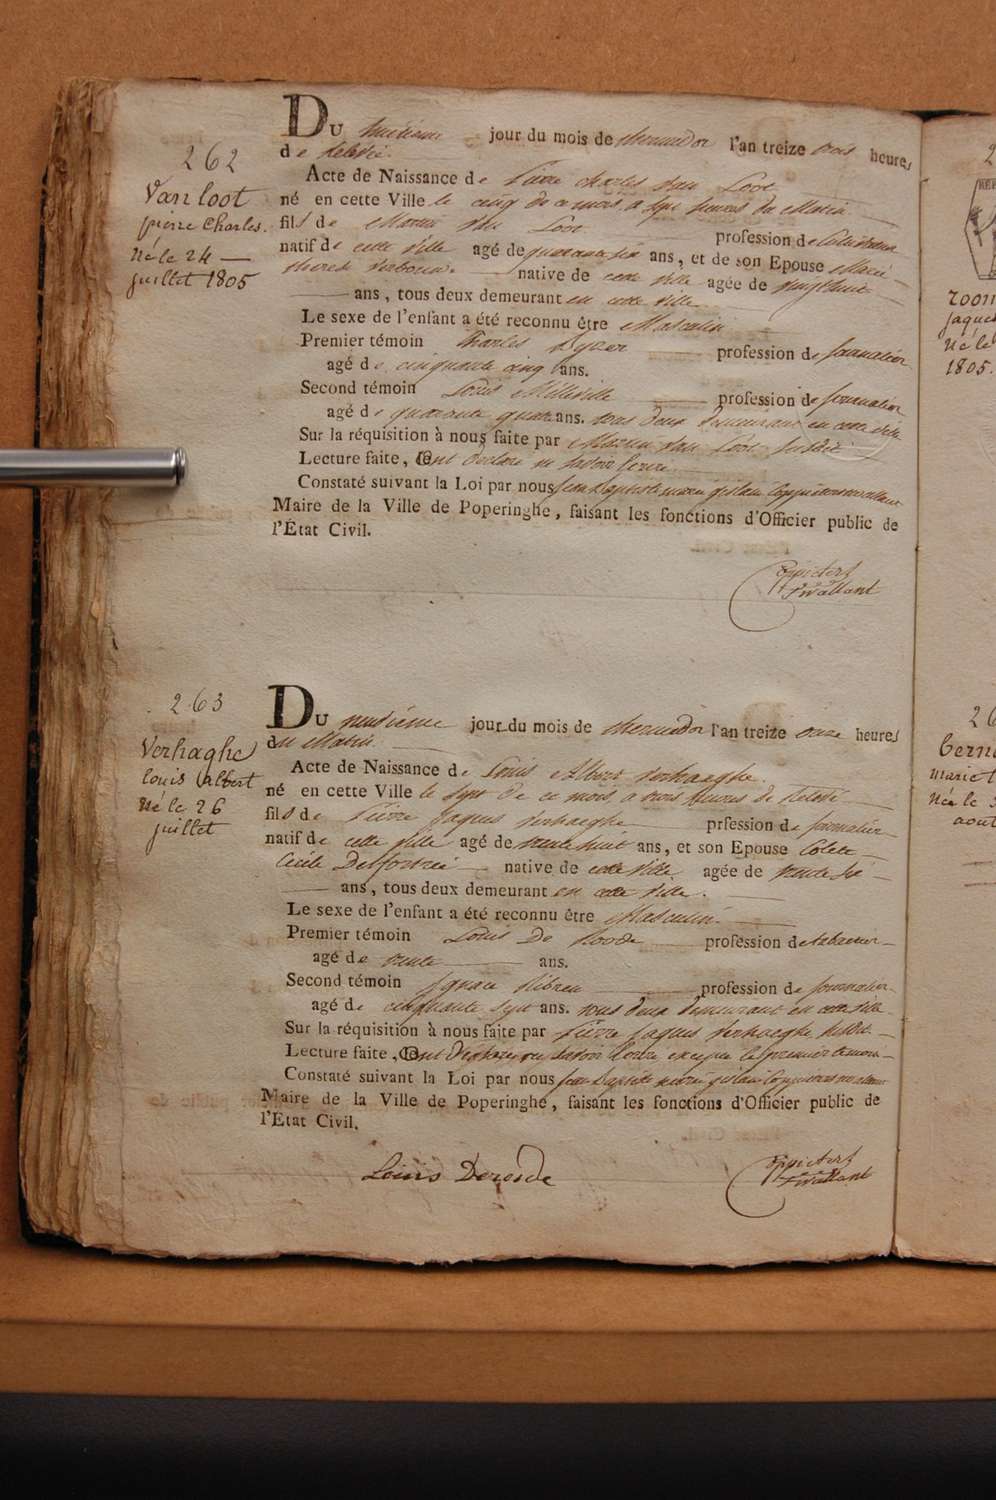 262
Vanloot
pierre Charles.
Né le 24 —
juillet 1805
Du huitieme jour du mois de thermidor l'an treize trois heures
de relevée.
Acte de Naissance de Pierre charles Van Loot
né en cette Ville le cinq de ce mois a sept heures du Matin
fils de Martin Van Loot profession de
natif de cette ville agé de quarante six ans, et de son Epouse Marie
native de cette ville agée de vingthuit
ans, tous deux demeurant en cette ville
Le sexe de l'enfant a été reconnu être Masculin
Premier témoin Charles profession de journalier
agé de cinquante cinq ans.
Second témoin Louis profession de journalier
agé de quarante quatre ans. tous deux demeurant en cette ville
Sur la réquisition à nous faite par Martin Van Loot susdit
Lecture faite, ont déclaré ne savoir Ecrire
Constaté suivant la Loi par nous jean Baptiste
Maire de la Ville de Poperinghe, faisant les fonctions d'Officier public de
l'État Civil.
263
Verhaghe
louis Albert
Né le 26
juillet
Du neuvième jour du mois de thermidor l'an treize onze heures
du Matin
Acte de Naissance de Louis Albert Verhaeghe
né en cette Ville le sept de ce mois a trois heures de relevée
fils de Pierre Jaques Verhaeghe prfession de journalier
natif de cette ville agé de trente huit ans, et son Epouse Colete
Cecile native de cette ville agée de trente six
ans, tous deux demeurant en cette ville.
Le sexe de l'enfant a été reconnu être Masculin.
Premier témoin Louis De Roode profession de
agé de trente ans.
Second témoin Ignace profession de journalier
agé de cinquante sept ans. tous deux demeurant en cette ville
Sur la réquisition à nous faite par Pierre Jaques Verhaeghe susdit
Lecture faite, ont déclaré ne savoir Ecrire excepté le premier temoin
Constaté suivant la Loi par nous jean Baptiste
Maire de la Ville de Poperinghe, faisant les fonctions d'Officier public de
l'Etat Civil.
Louis Deroode
1805.